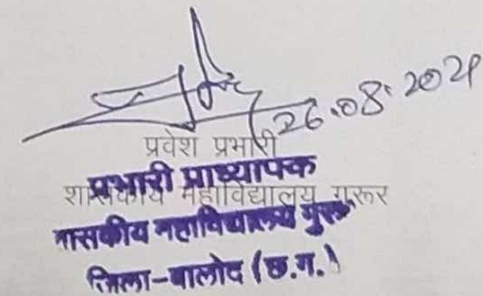 26.08.2021
प्रवेश प्रभारी
प्रभारी प्राध्यापक
शासकीय महाविद्यालय गुरूर
शासकीय महाविद्यालय गुरूर
जिला-बालोद (छ.ग.)